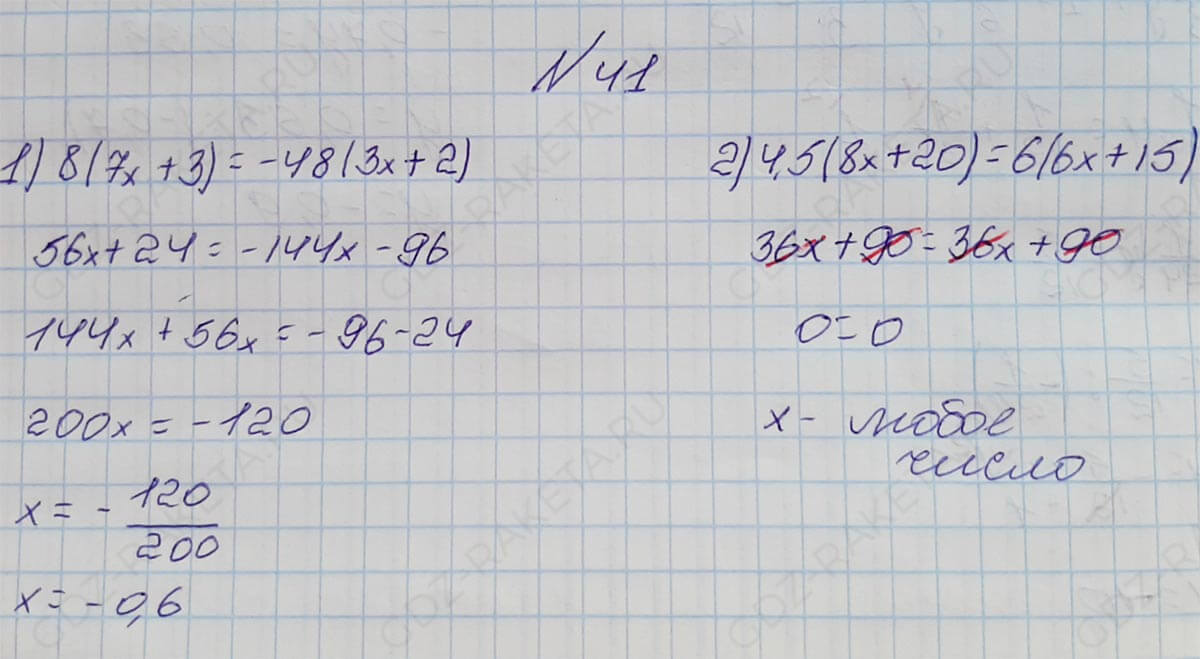 № 41
1) 8(7x + 3) = -48(3x + 2)
56x + 24 = -144x - 96
144x + 56x = - 96 - 24
200x = -120
x = - 120/200
x = - 0,6
2) 4,5(8x + 20) = 6(6x + 15)
36x + 90 = 36x + 90
0 = 0
x - любое
число
GDZ-RAKETA.RU